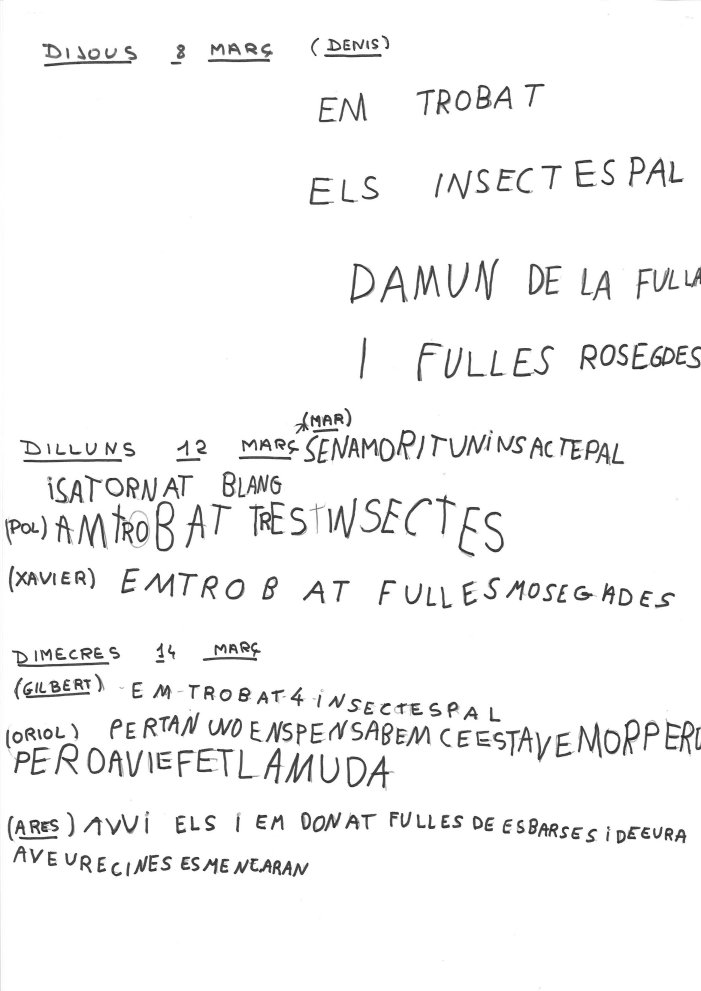 DIJOUS 8 MARÇ (DENIS)
EM TROBAT
ELS INSECTES PAL
DAMUN DE LA FULLA
I FULLES ROSEGDES
(MAR)
DILLUNS 12 MARÇ SENAMORITUNiNSACTEPAL
iSATORNAT BLANG
(POL) AMtROBAT tRES INSECTES
(XAVIER) EMTROBAT FULLES MOSEGADES
DIMECRES 14 MARÇ
(GILBERT) EM TROBAT 4 iNSECTESPAL
(ORIOL) PERTAN UNO ENSPENSABEM CEESTAVEMORPERO
PEROAVIEFETLAMUDA
(ARES) AVVi ELS I EM DONAT FULLES DE ESBARSES i DEEURA
AVEURECINES ESMENEARAN